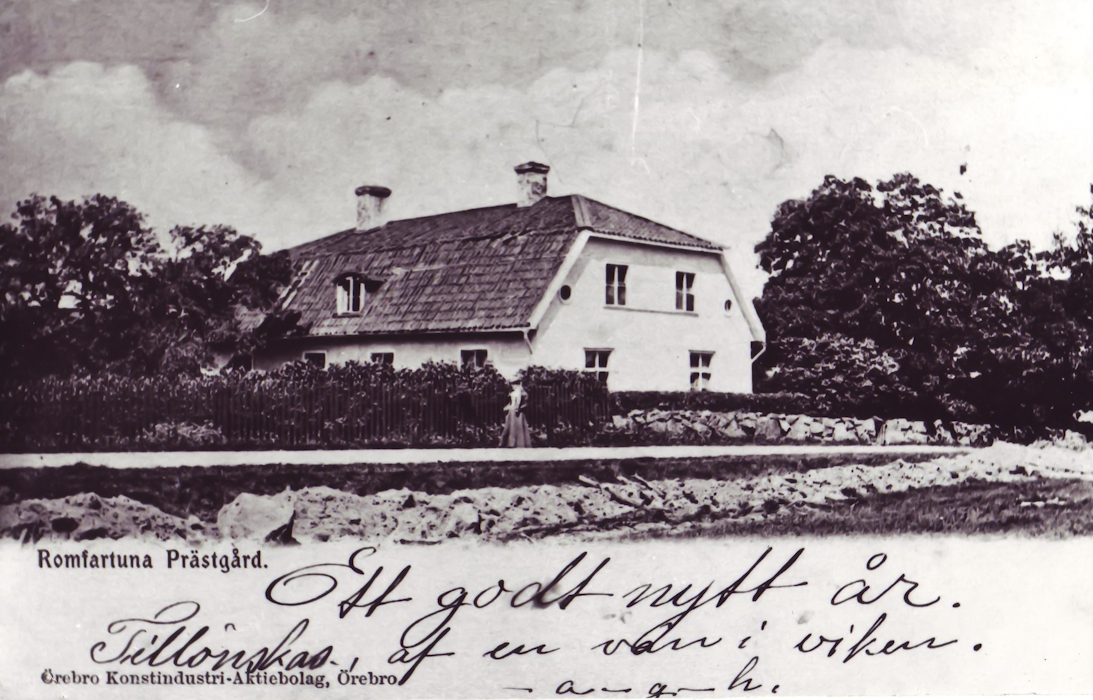 Romfartuna Prästgård.
Ett godt nytt år.
Tillönskas, af en vän i viken.
Örebro Konstindustri-Aktiebolag, Örebro